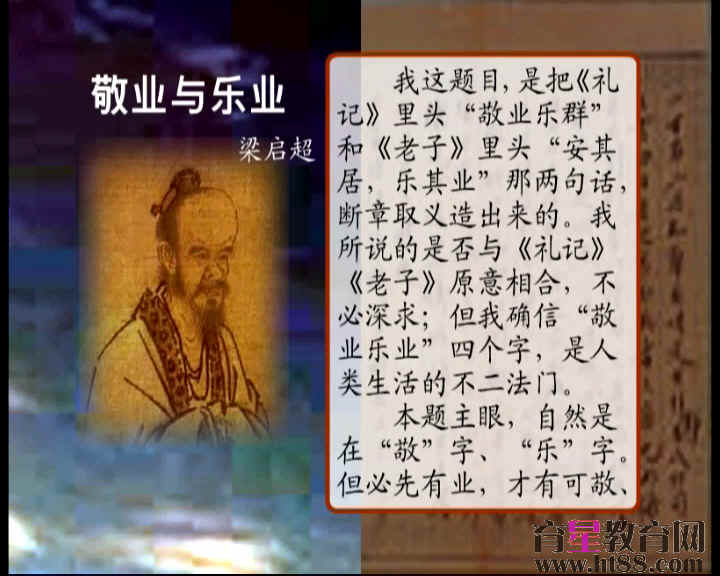 敬业与乐业
梁启超
我这题目，是把《礼
记》里头“敬业乐群”
和《老子》里头“安其
居，乐其业”那两句话，
断章取义造出来的。我
所说的是否与《礼记》
《老子》原意相合，不
必深求；但我确信“敬
业乐业”四个字，是人
类生活的不二法门。
本题主眼，自然是
在“敬”字、“乐”字。
但必先有业，才有可敬、
育星教育网
www.ht88.com